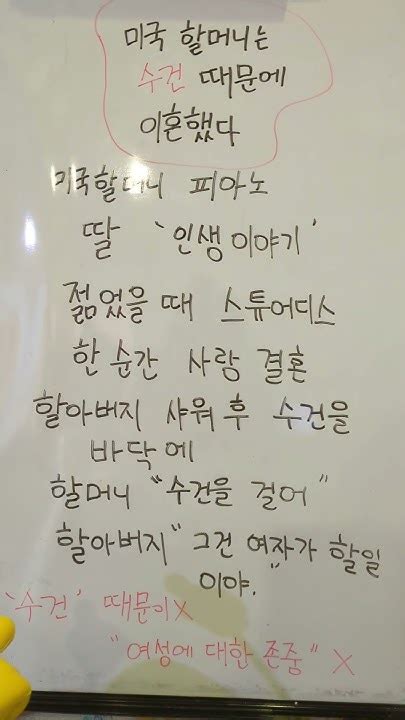 미국 할머니는
수건 때문에
이혼했다
미국할머니 피아노
딸 '인생이야기'
젊었을 때 스튜어디스
한순간 사랑 결혼
할아버지 샤워 후 수건을
바닥에
할머니 "수건을 걸어"
할아버지 "그건 여자가 할일
이야."
'수건' 때문이X
"여성에 대한 존중" X